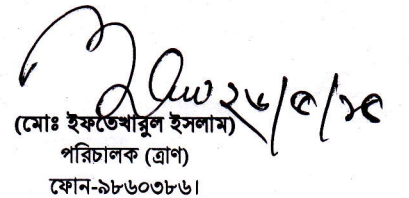 ২৬/৫/১৫
(মোঃ ইফতেখারুল ইসলাম)
পরিচালক (ত্রাণ)
ফোন-৯৮৬০৩৮৬।